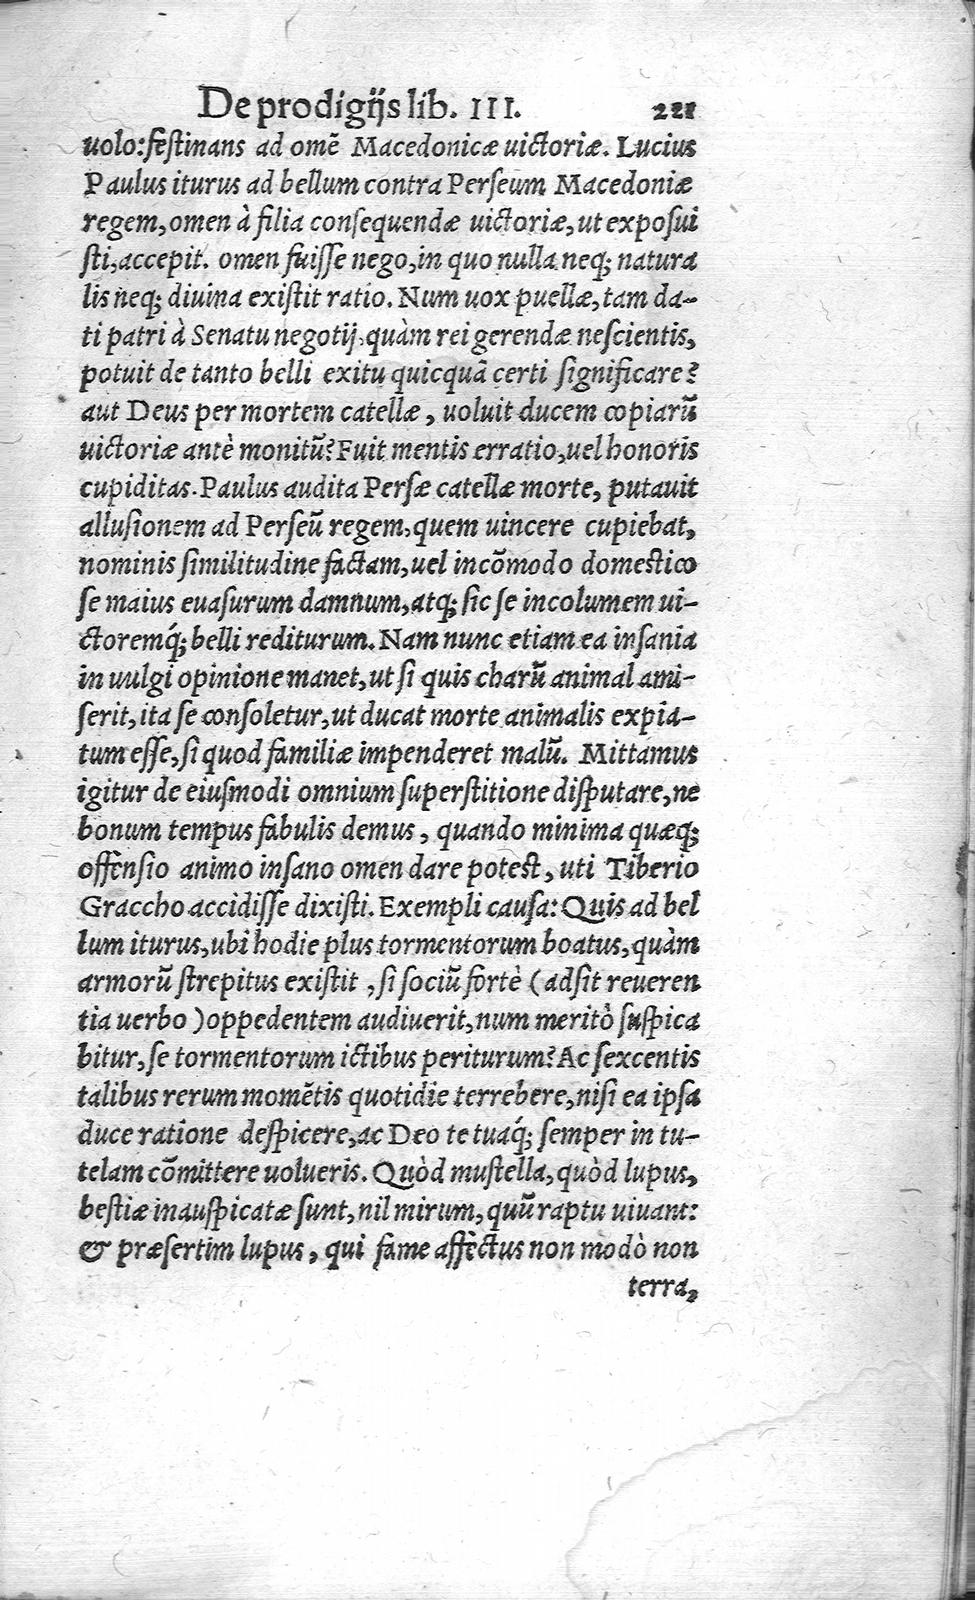 De prodigijs lib. III. 221
uolo: festinans ad omē Macedonicæ uictoriæ. Lucius
Paulus iturus ad bellum contra Perseum Macedoniæ
regem, omen à filia consequendæ uictoriæ, ut exposui
sti, accepit. omen fuisse nego, in quo nulla neq; natura
lis neq; diuina existit ratio. Num uox puellæ, tam da-
ti patri à Senatu negotij, quàm rei gerendæ nescientis,
potuit de tanto belli exitu quicquã certi significare?
aut Deus per mortem catellæ, uoluit ducem copiarũ
uictoriæ antè monitũ? Fuit mentis erratio, uel honoris
cupiditas. Paulus audita Persæ catellæ morte, putauit
allusionem ad Perseũ regem, quem uincere cupiebat,
nominis similitudine factam, uel incõmodo domestico
se maius euasurum damnum, atq; sic se incolumem ui-
ctoremq́; belli rediturum. Nam nunc etiam ea insania
in uulgi opinione manet, ut si quis charũ animal ami-
serit, ita se consoletur, ut ducat morte animalis expia-
tum esse, si quod familiæ impenderet malũ. Mittamus
igitur de eiusmodi omnium superstitione disputare, ne
bonum tempus fabulis demus, quando minima quæq;
offensio animo insano omen dare potest, uti Tiberio
Graccho accidisse dixisti. Exempli causa: Quis ad bel
lum iturus, ubi hodie plus tormentorum boatus, quàm
armorũ strepitus existit, si sociũ fortè (adsit reueren
tia uerbo) oppedentem audiuerit, num meritò suspica
bitur, se tormentorum ictibus periturum? Ac sexcentis
talibus rerum momẽtis quotidie terrebere, nisi ea ipsa
duce ratione despicere, ac Deo te tuaq́; semper in tu-
telam cõmittere uolueris. Quòd mustella, quòd lupus,
bestiæ inauspicatæ sunt, nil mirum, quũ raptu uiuant:
& præsertim lupus, qui fame affectus non modò non
terra,